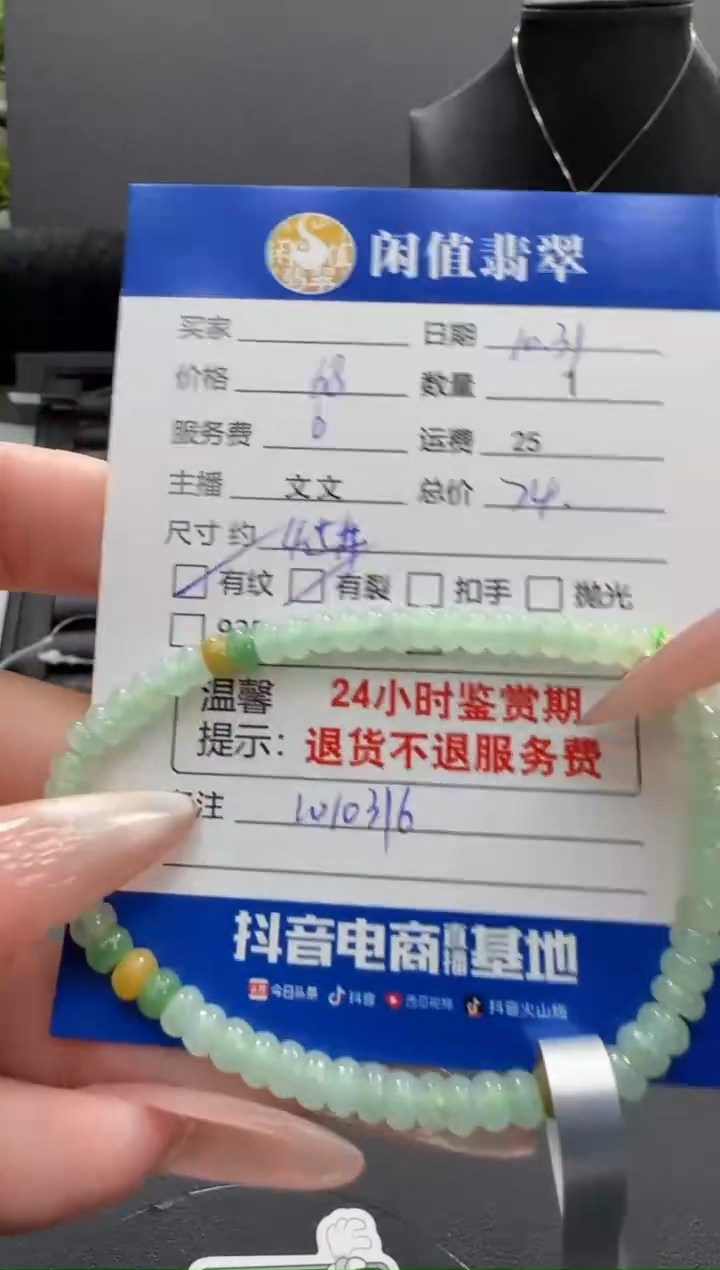 闲值翡翠
买家 日期 10.31
价格 68 数量 1
服务费 0 运费 25
主播 文文 总价
尺寸 约
有纹 有裂 扣手 抛光
温馨 24小时鉴赏期
提示: 退货不退服务费
备注
抖音电商直播基地
今日头条 抖音 西瓜视频 抖音火山版